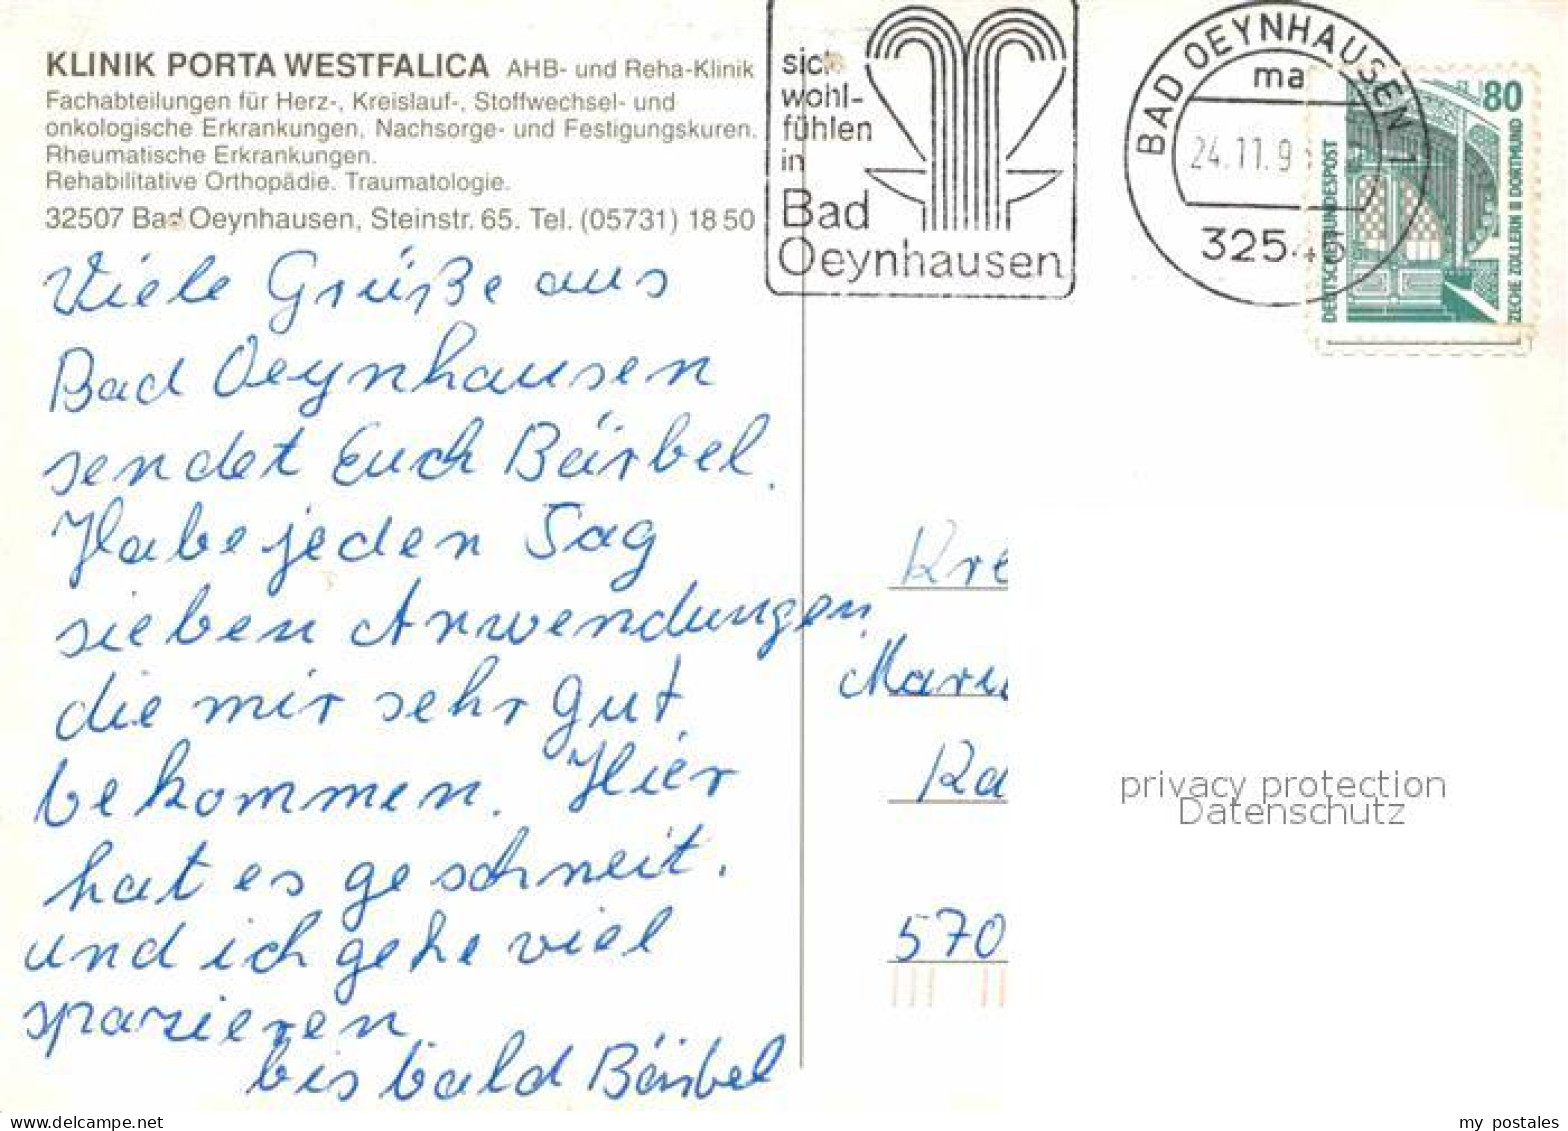 KLINIK PORTA WESTFALICA AHB- und Reha-Klinik
Fachabteilungen für Herz-, Kreislauf-, Stoffwechsel- und
onkologische Erkrankungen. Nachsorge- und Festigungskuren.
Rheumatische Erkrankungen.
Rehabilitative Orthopädie. Traumatologie.
32507 Bad Oeynhausen, Steinstr. 65. Tel. (05731) 18 50
Viele Grüße aus
Bad Oeynhausen
sendet Euch Bärbel.
Habe jeden Tag
sieben Anwendungen
die mir sehr gut
bekommen. Hier
hat es geschneit.
und ich gehe viel
spazieren
bis bald Bärbel
sich
wohl-
fühlen
in
Bad
Oeynhausen
BAD OEYNHAUSEN 1
ma
24.11.9
325
80
DEUTSCHE BUNDESPOST
ZECHE ZOLLERN II DORTMUND
Kre
Ka
570
privacy protection
Datenschutz
my postales
www.delcampe.net